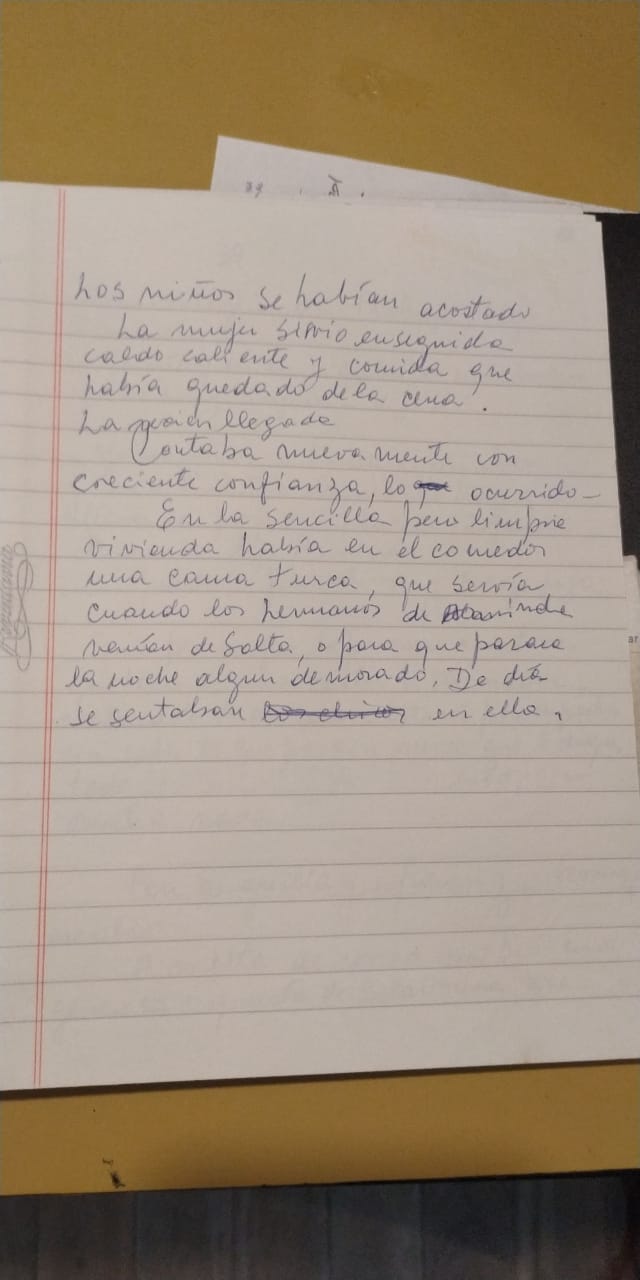 II.
Los niños se habían acostado
La mujer sirvio enseguida
caldo caliente y comida que
había quedado de la cena.
La recien llegada
Contaba nuevamente con
creciente confianza, lo que ocurrido -
En la sencilla pero limpia
vivienda había en el comedor
una cama turca, que servía
cuando los hermanos de
venían de Salta, o para que parara
la noche algun demorado. De día
se sentaban los chicos en ella.